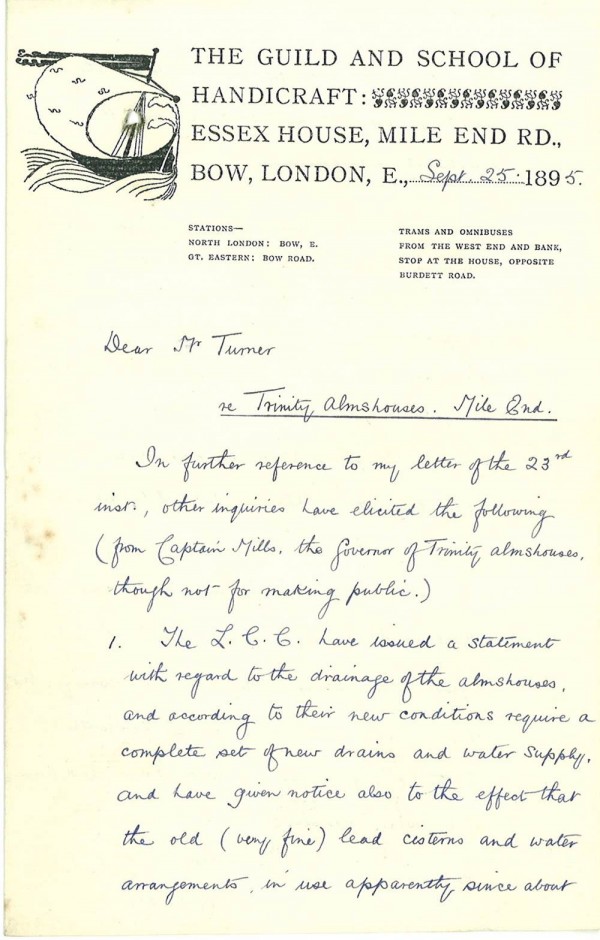 THE GUILD AND SCHOOL OF
HANDICRAFT:
ESSEX HOUSE, MILE END RD.,
BOW, LONDON, E., Sept. 25: 1895.
STATIONS—
NORTH LONDON: BOW, E.
GT. EASTERN: BOW ROAD.
TRAMS AND OMNIBUSES
FROM THE WEST END AND BANK,
STOP AT THE HOUSE, OPPOSITE
BURDETT ROAD.
Dear Mr Turner
re Trinity Almshouses. Mile End.
In further reference to my letter of the 23rd
inst., other inquiries have elicited the following
(from Captain Mills, the Governor of Trinity almshouses,
though not for making public.)
1. The L. C. C. have issued a statement
with regard to the drainage of the almshouses,
and according to their new conditions require a
complete set of new drains and water supply,
and have given notice also to the effect that
the old (very fine) lead cisterns and water
arrangements, in use apparently since about